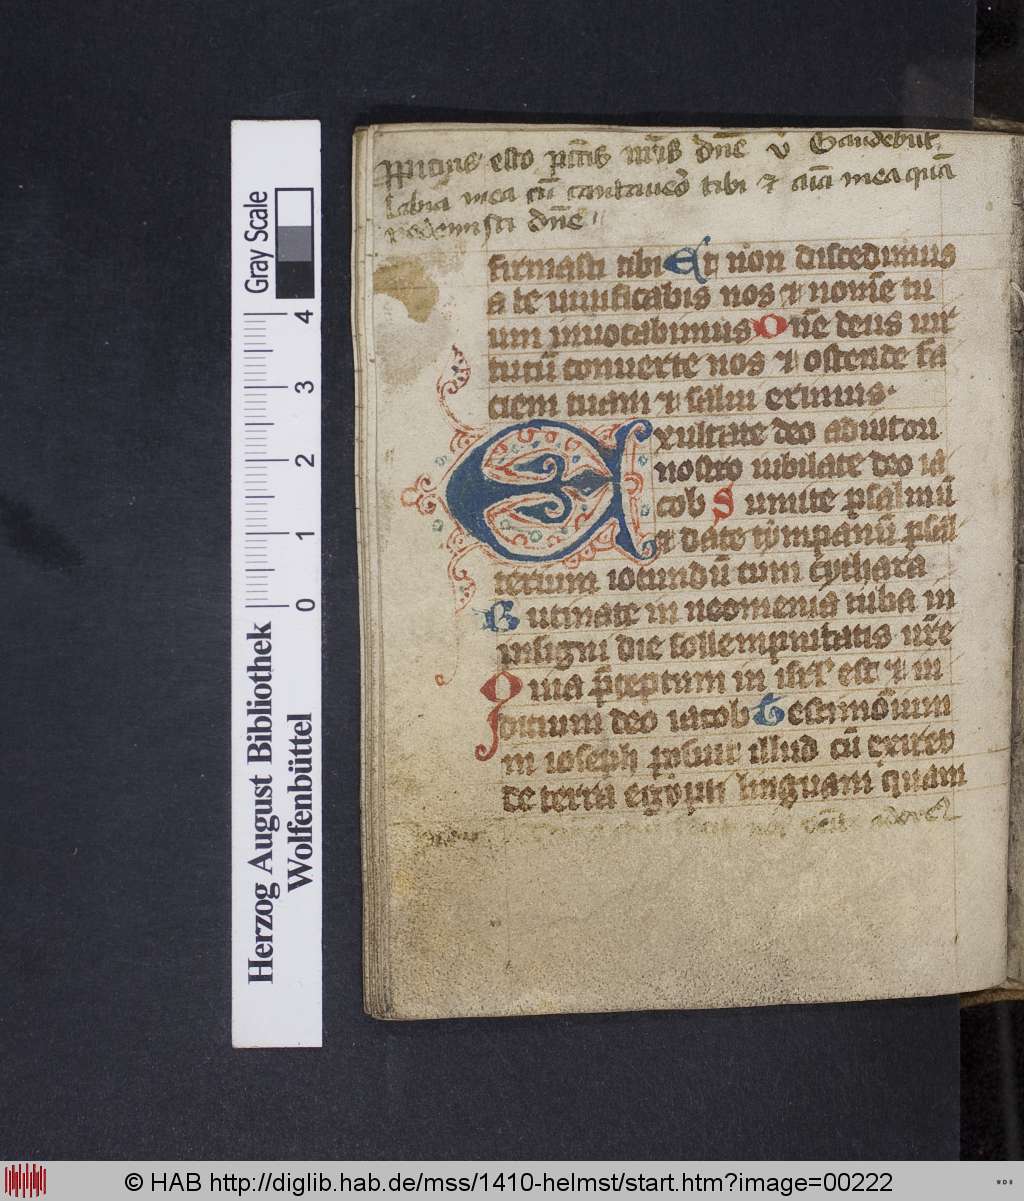 Ppicius esto pctis nris dne v Gaudebūt
labia mea cū cantauero tibi ⁊ aīa mea quā
redemisti dne
firmasti tibi Et non discedimus
a te uiuificabis nos ⁊ nomē tu
um inuocabimus Dn̄e deus uir
tutū conuerte nos ⁊ ostende fa
ciem tuam ⁊ salui erimus.
Exultate deo adiutori
nostro iubilate deo ia
cob Sumite psalmū
et date tympanū psal
terium iocundū cum cythara
Bucinate in neomenia tuba in
insigni die sollempnitatis nr̄e
Quia p̄ceptum in isrl' est ⁊ iu
dicium deo iacob Testimōium
in ioseph posuit illud cū exiret
de terra egypti linguam quam
Gray Scale
4
3
2
1
0
Herzog August Bibliothek
Wolfenbüttel
© HAB http://diglib.hab.de/mss/1410-helmst/start.htm?image=00222